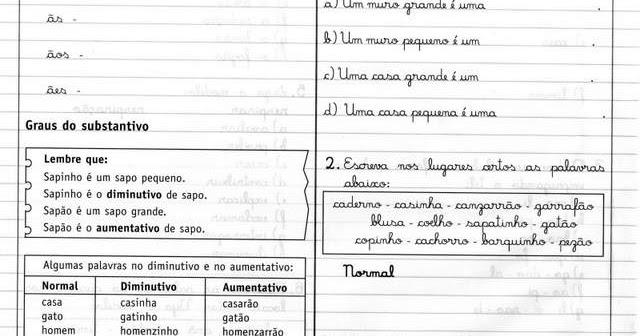 ãs -
ãos -
ães -
Graus do substantivo
Lembre que:
Sapinho é um sapo pequeno.
Sapinho é o diminutivo de sapo.
Sapão é um sapo grande.
Sapão é o aumentativo de sapo.
Algumas palavras no diminutivo e no aumentativo:
Normal Diminutivo Aumentativo
casa casinha casarão
gato gatinho gatão
homem homenzinho homenzarrão
a) Um muro grande é uma .
b) Um muro pequeno é um .
c) Uma casa grande é um .
d) Uma casa pequena é uma .
2. Escreva nos lugares certos as palavras
abaixo:
caderno - casinha - canzarrão - garrafão
blusa - coelho - sapatinho - gatão
copinho - cachorro - barquinho - pezão
Normal